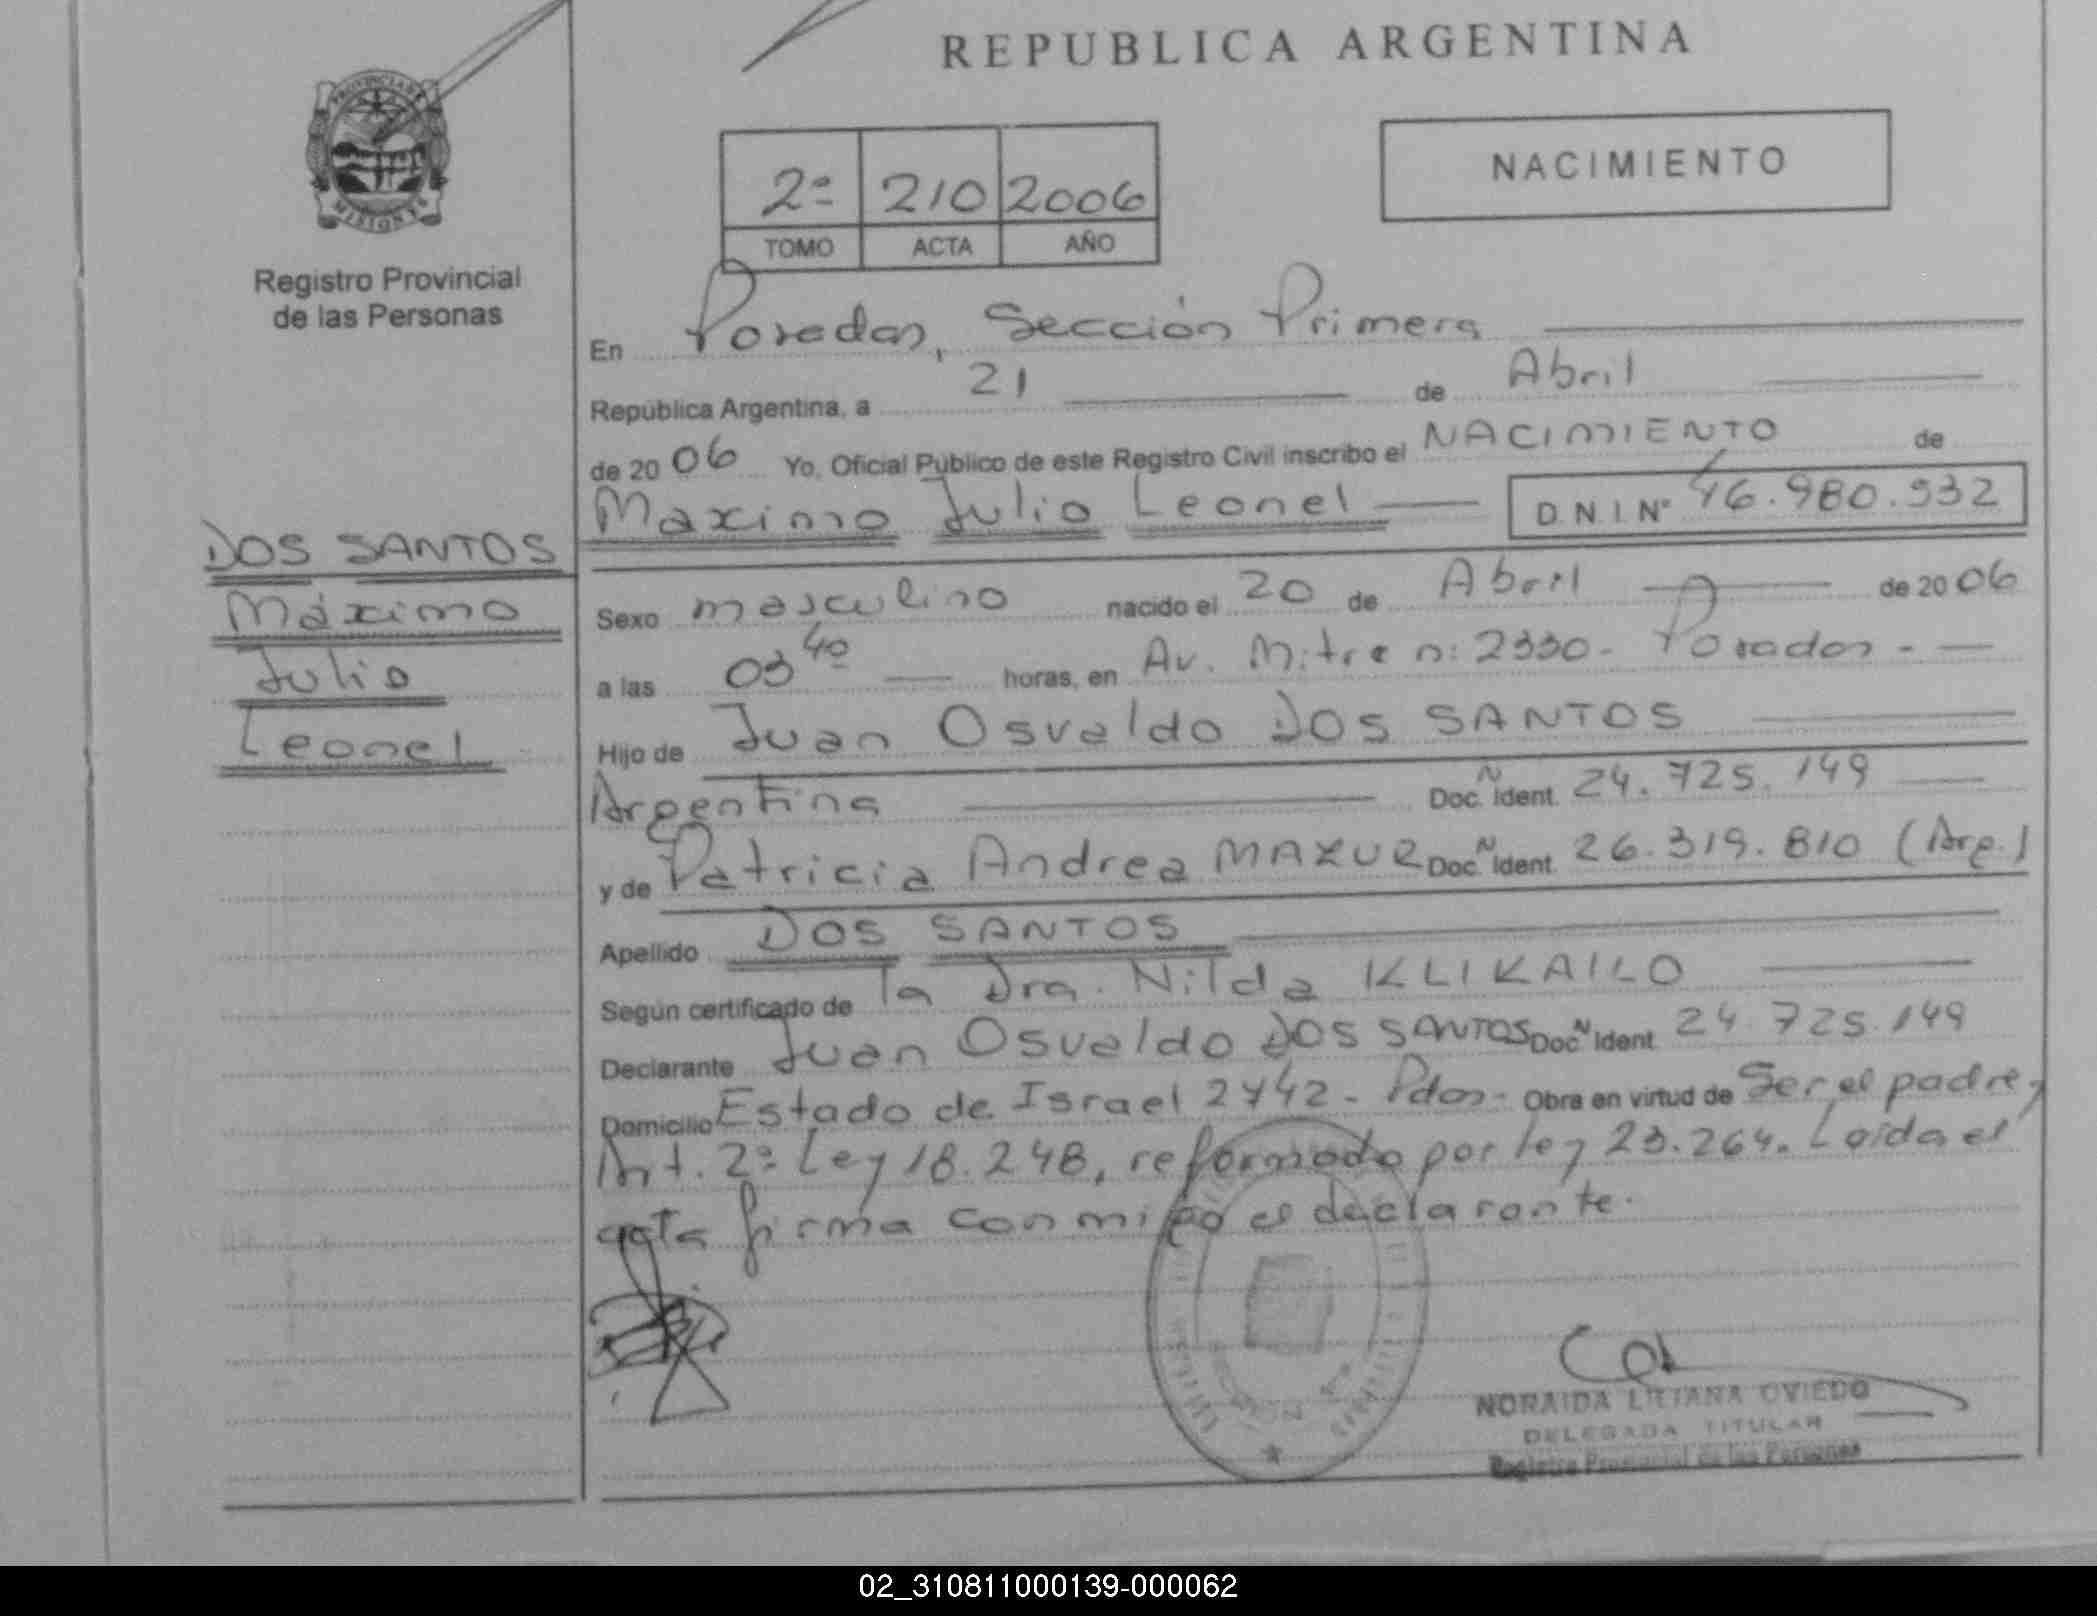 REPUBLICA ARGENTINA
PROVINCIA DE
MISIONES
Registro Provincial
de las Personas
2º 210 2006
TOMO ACTA AÑO
NACIMIENTO
En Posadas, Sección Primera
República Argentina, a 21 de Abril
de 2006 Yo, Oficial Público de este Registro Civil inscribo el NACIMIENTO de
Maximo Julio Leonel D.N.I.Nº 46.980.532
DOS SANTOS
Máximo
Julio
Leonel
Sexo masculino nacido el 20 de Abril de 2006
a las 03 40 horas, en Av. Mitre nº 2330 - Posadas - —
Hijo de Juan Osvaldo DOS SANTOS
Argentina Doc. Ident. 24.725.149
y de Patricia Andrea MAZUR Doc. Ident. 26.319.810 (Arg.)
Apellido DOS SANTOS
Según certificado de la Dra. Nilda KLIKAILO
Declarante Juan Osvaldo DOS SANTOS Doc. Ident. 24.725.149
Domicilio Estado de Israel 2742 - Pdas - Obra en virtud de Ser el padre,
Art. 2º Ley 18.248, reformado por ley 23.264. Leida el
acta firma conmigo el declarante.
NORAIDA LILIANA OVIEDO
DELEGADA TITULAR
Registro Provincial de las Personas
02_310811000139-000062